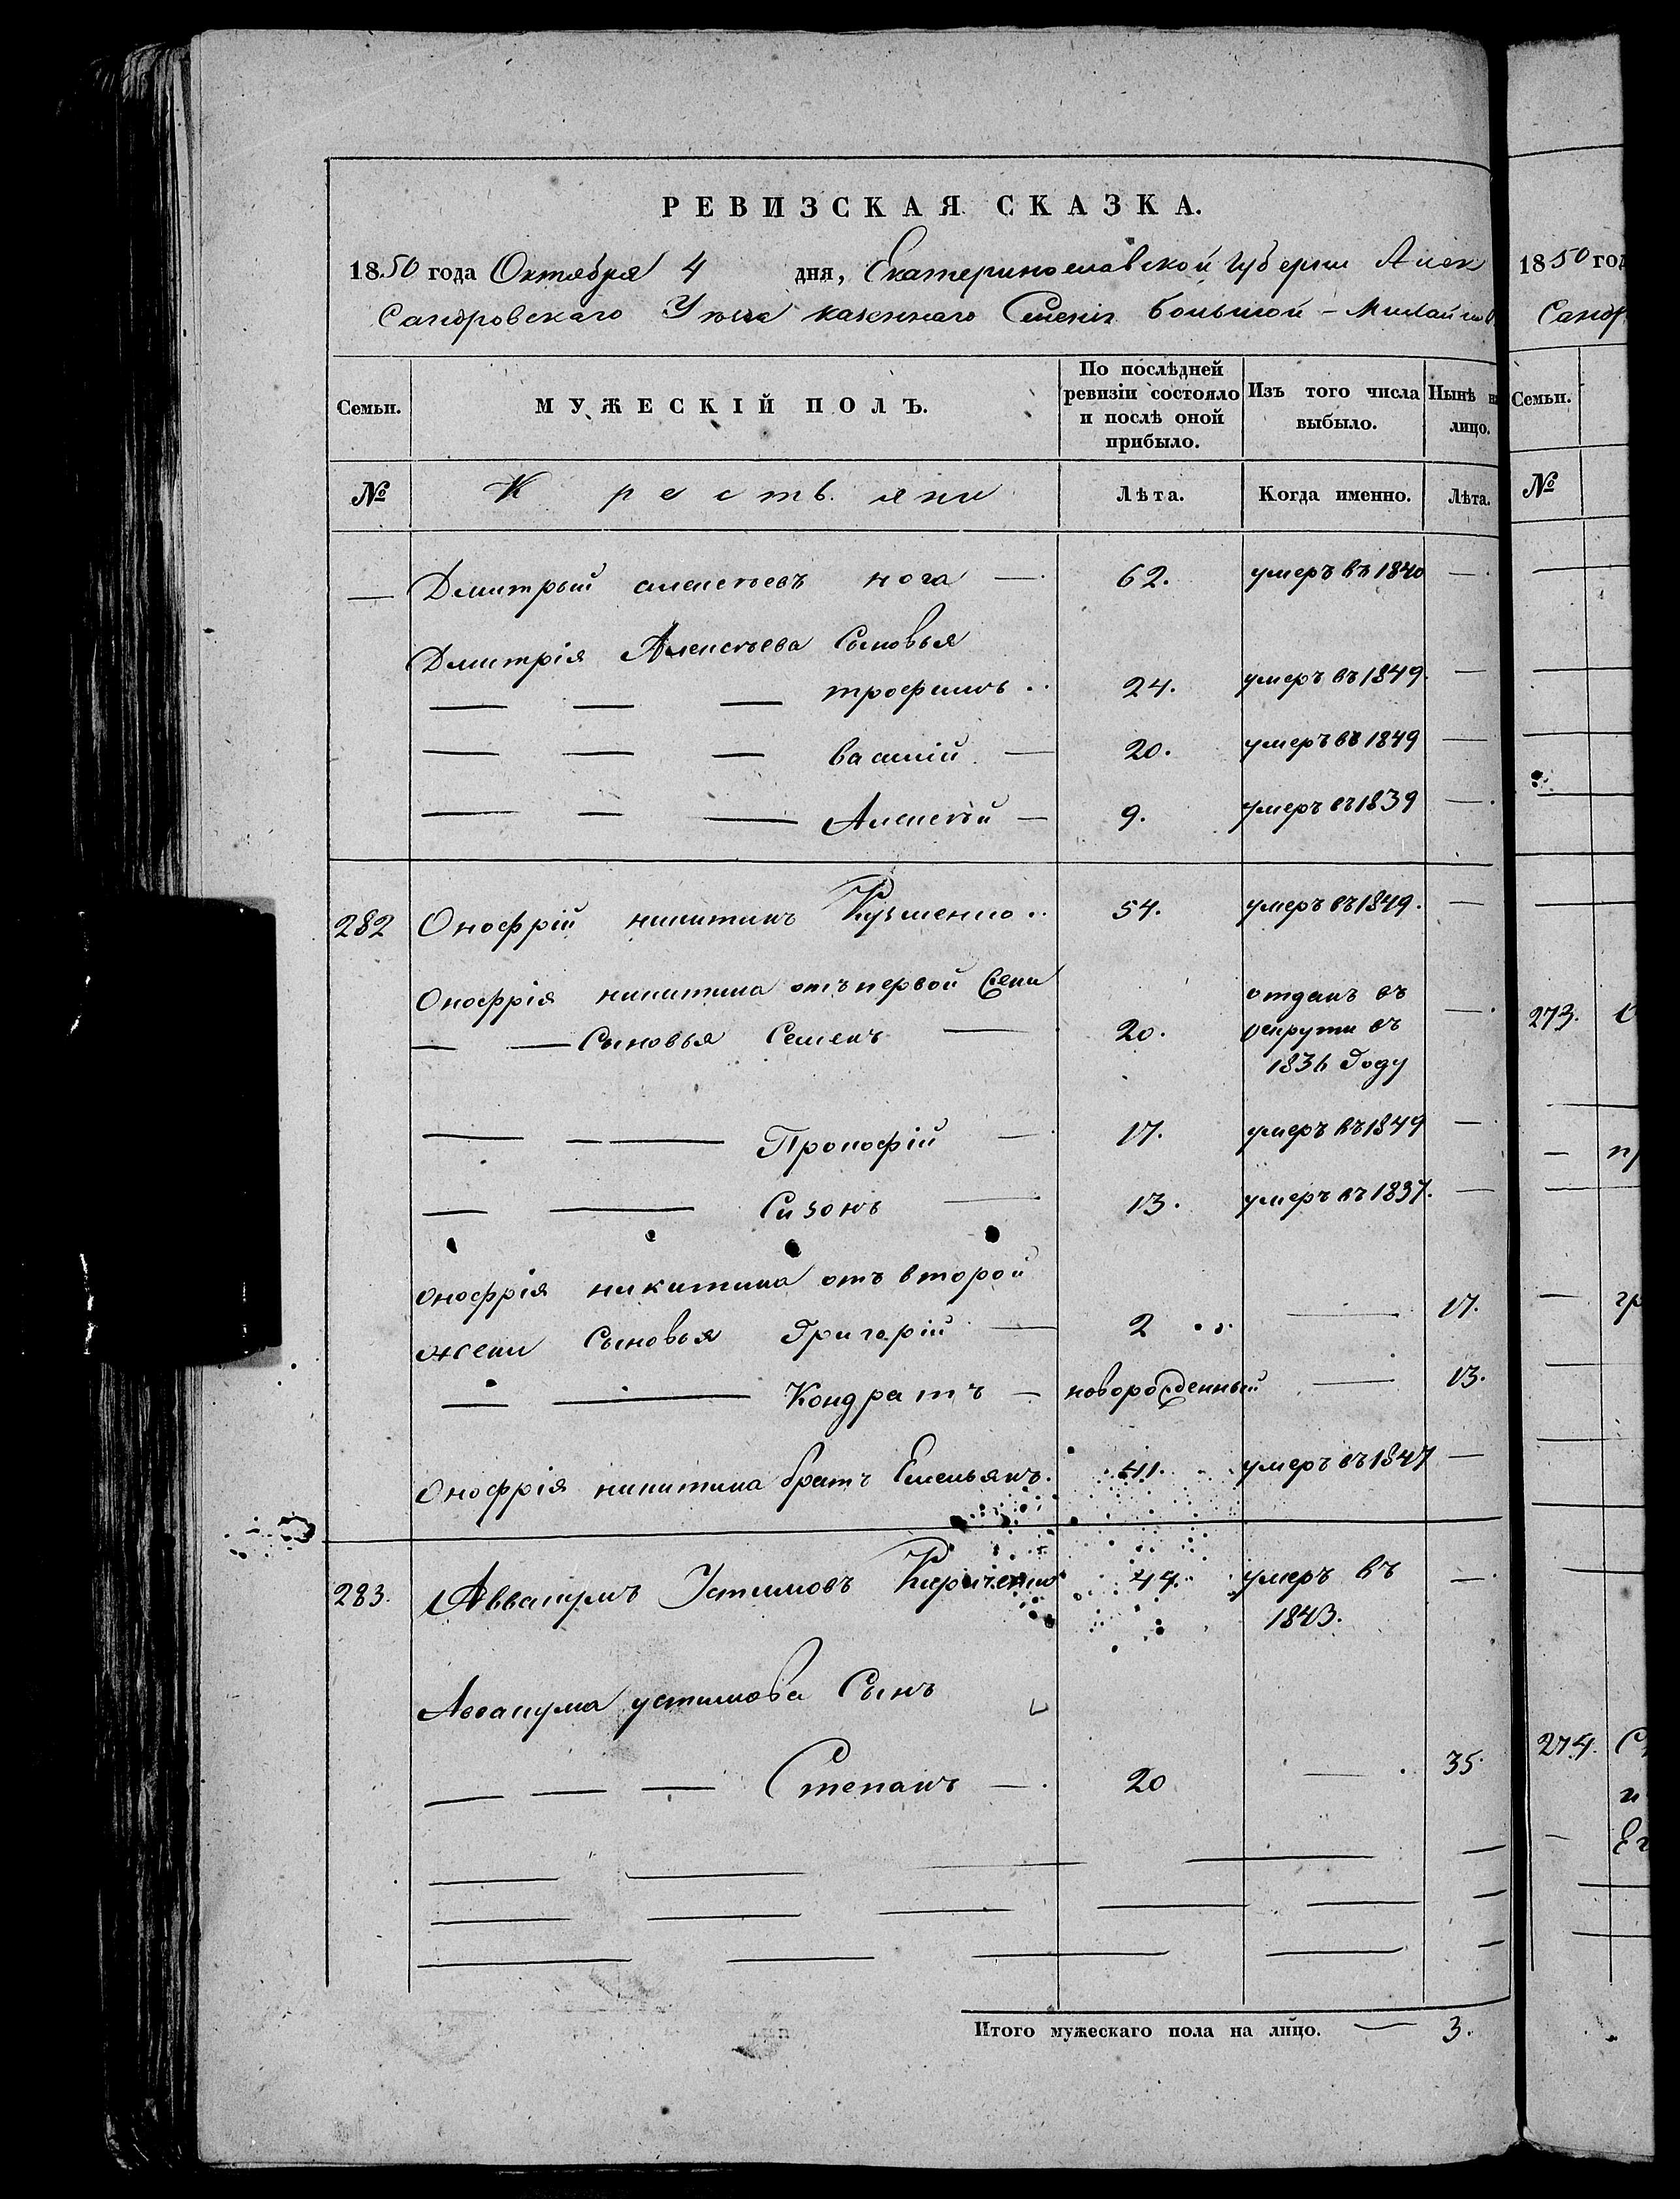 РЕВИЗСКАЯ СКАЗКА.
1850 года Октября 4 дня, Екатеринославской губернии Алек
сандровскаго Уезда казеннаго Селенія большой - Михайлов
Семьи. МУЖЕСКІЙ ПОЛЪ. По послѣдней ревизіи состояло и послѣ оной прибыло. Изъ того числа выбыло. Нынѣ на лицо.
№ Крестьяне Лѣта. Когда именно. Лѣта.
— Дмитрый алексѣевъ нога — 62. умеръ въ 1840 —
Дмитрія Алексѣева Сыновья
— — — трофимъ 24. умеръ въ 1849. —
— — — василій — 20. умеръ въ 1849 —
— — — Алексѣй — 9. умеръ въ 1839 —
282 Онофрій никитинъ Кузменко 54. умеръ въ 1849. —
Онофрія никитина отъ первой жены
— — Сыновья Семенъ — 20. отданъ въ рекруты въ 1836 Году —
— — — Прокофій — 17. умеръ въ 1849 —
— — Сизонъ — 13. умеръ въ 1837. —
онофрія никитина отъ второй
жены Сыновья Григорій — 2 — 17.
— — Кондратъ — новорожденный — 13.
Онофрія никитина братъ Емельянъ. 41. умеръ въ 1847 —
283. Аввакумъ Устимовъ 44. умеръ въ 1843. —
Аввакума устимова Сынъ
— — — Степанъ — 20 — 35.
Итого мужескаго пола на лицо. — 3.
1850 год
Сандр
Семьи.
№
273.
274.